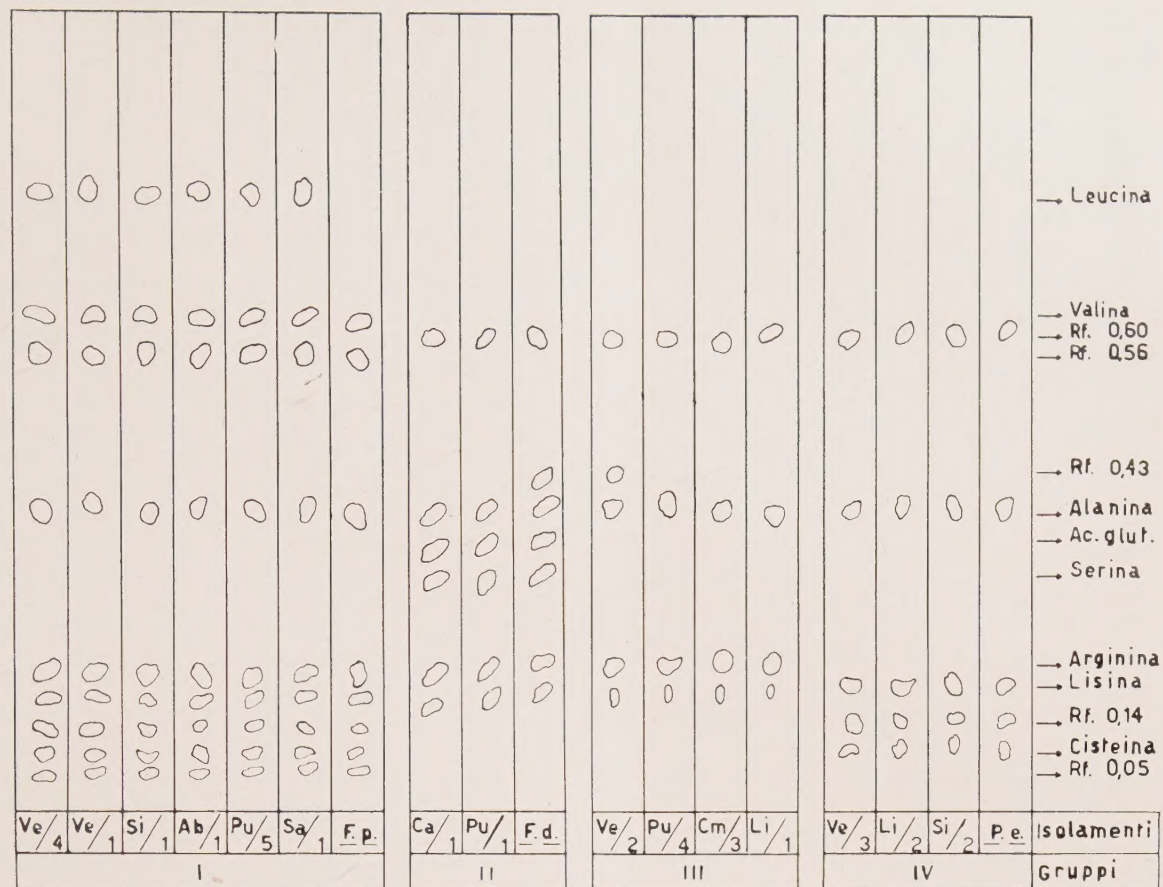 → Leucina
→ Valina
→ Rf. 0,60
→ Rf. 0,56
→ Rf. 0,43
→ Alanina
→ Ac. glut.
→ Serina
→ Arginina
→ Lisina
→ Rf. 0,14
→ Cisteina
→ Rf. 0,05
Ve/4 Ve/1 Si/1 Ab/1 Pu/5 Sa/1 F. p. Ca/1 Pu/1 F. d. Ve/2 Pu/4 Cm/3 Li/1 Ve/3 Li/2 Si/2 P. e. Isolamenti
I II III IV Gruppi